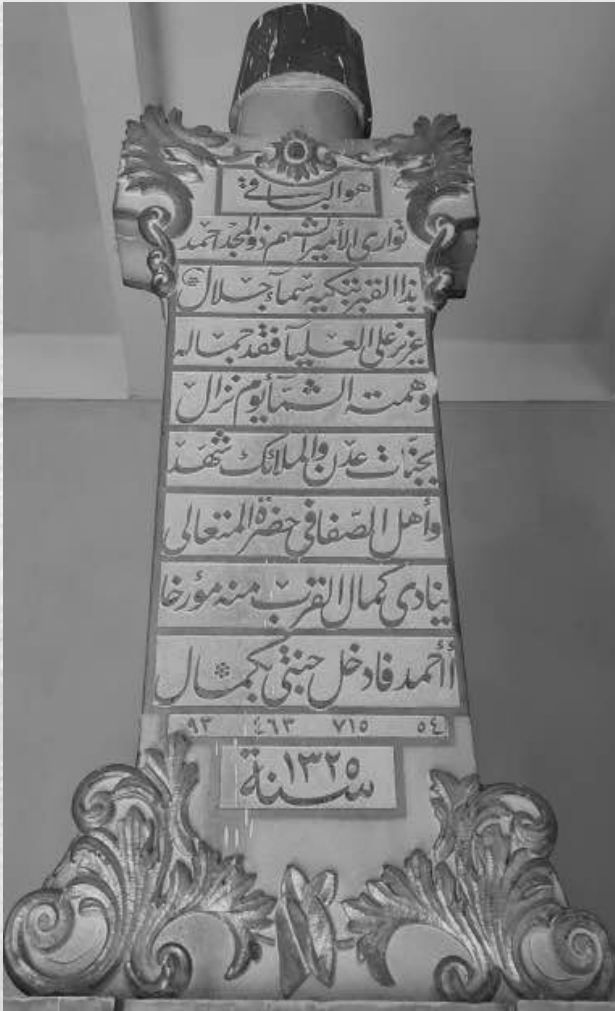 هو الباقي
توارى الأمير الشهم ذو المجد احمد
بذا القبر تبكيه سماء جلال
عزيز على العليا فقد جماله
وهمته الشمآ يوم نزال
بجنات عدن والملائك شهد
وأهل الصفا في حضرة المتعالى
ينادى كمال القرب منه مؤرخا
أأحمد فادخل جنتى بكمال
٥٤ ٧١٥ ٤٦٣ ٩٣
سنة ١٣٢٥